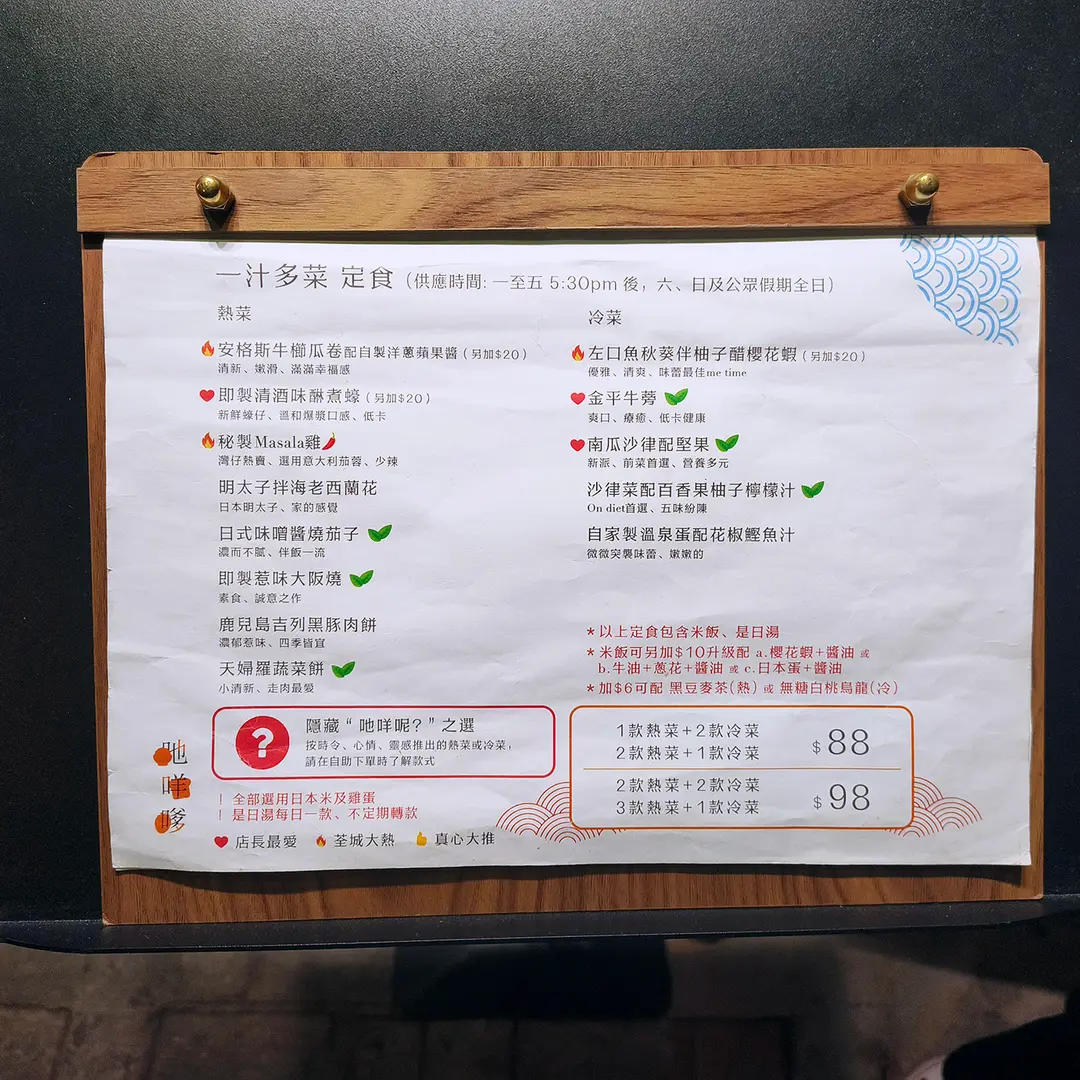 一汁多菜 定食 (供應時間: 一至五 5:30pm 後, 六、日及公眾假期全日)
熱菜
安格斯牛櫛瓜卷配自製洋蔥蘋果醬 (另加$20)
清新、嫩滑、滿滿幸福感
即製清酒味醂煮蠔 (另加$20)
新鮮蠔仔、溫和爆漿口感、低卡
秘製Masala雞
灣仔熱賣、選用意大利茄蓉、少辣
明太子拌海老西蘭花
日本明太子、家的感覺
日式味噌醬燒茄子
濃而不膩、伴飯一流
即製惹味大阪燒
素食、誠意之作
鹿兒島吉列黑豚肉餅
濃郁惹味、四季皆宜
天婦羅蔬菜餅
小清新、走肉最愛
冷菜
左口魚秋葵伴柚子醋櫻花蝦 (另加$20)
優雅、清爽、味蕾最佳me time
金平牛蒡
爽口、療癒、低卡健康
南瓜沙律配堅果
新派、前菜首選、營養多元
沙律菜配百香果柚子檸檬汁
On diet首選、五味紛陳
自家製溫泉蛋配花椒鰹魚汁
微微突襲味蕾、嫩嫩的
*以上定食包含米飯、是日湯
*米飯可另加$10升級配 a.櫻花蝦+醬油 或
b.牛油+蔥花+醬油 或 c.日本蛋+醬油
*加$6可配 黑豆麥茶(熱) 或 無糖白桃烏龍(冷)
?
隱藏“吔咩呢?”之選
按時令、心情、靈感推出的熱菜或冷菜,
請在自助下單時了解款式
1款熱菜+2款冷菜
2款熱菜+1款冷菜
$88
2款熱菜+2款冷菜
3款熱菜+1款冷菜
$98
吔
咩
嗲
! 全部選用日本米及雞蛋
! 是日湯每日一款、不定期轉款
店長最愛 荃城大熱 真心大推